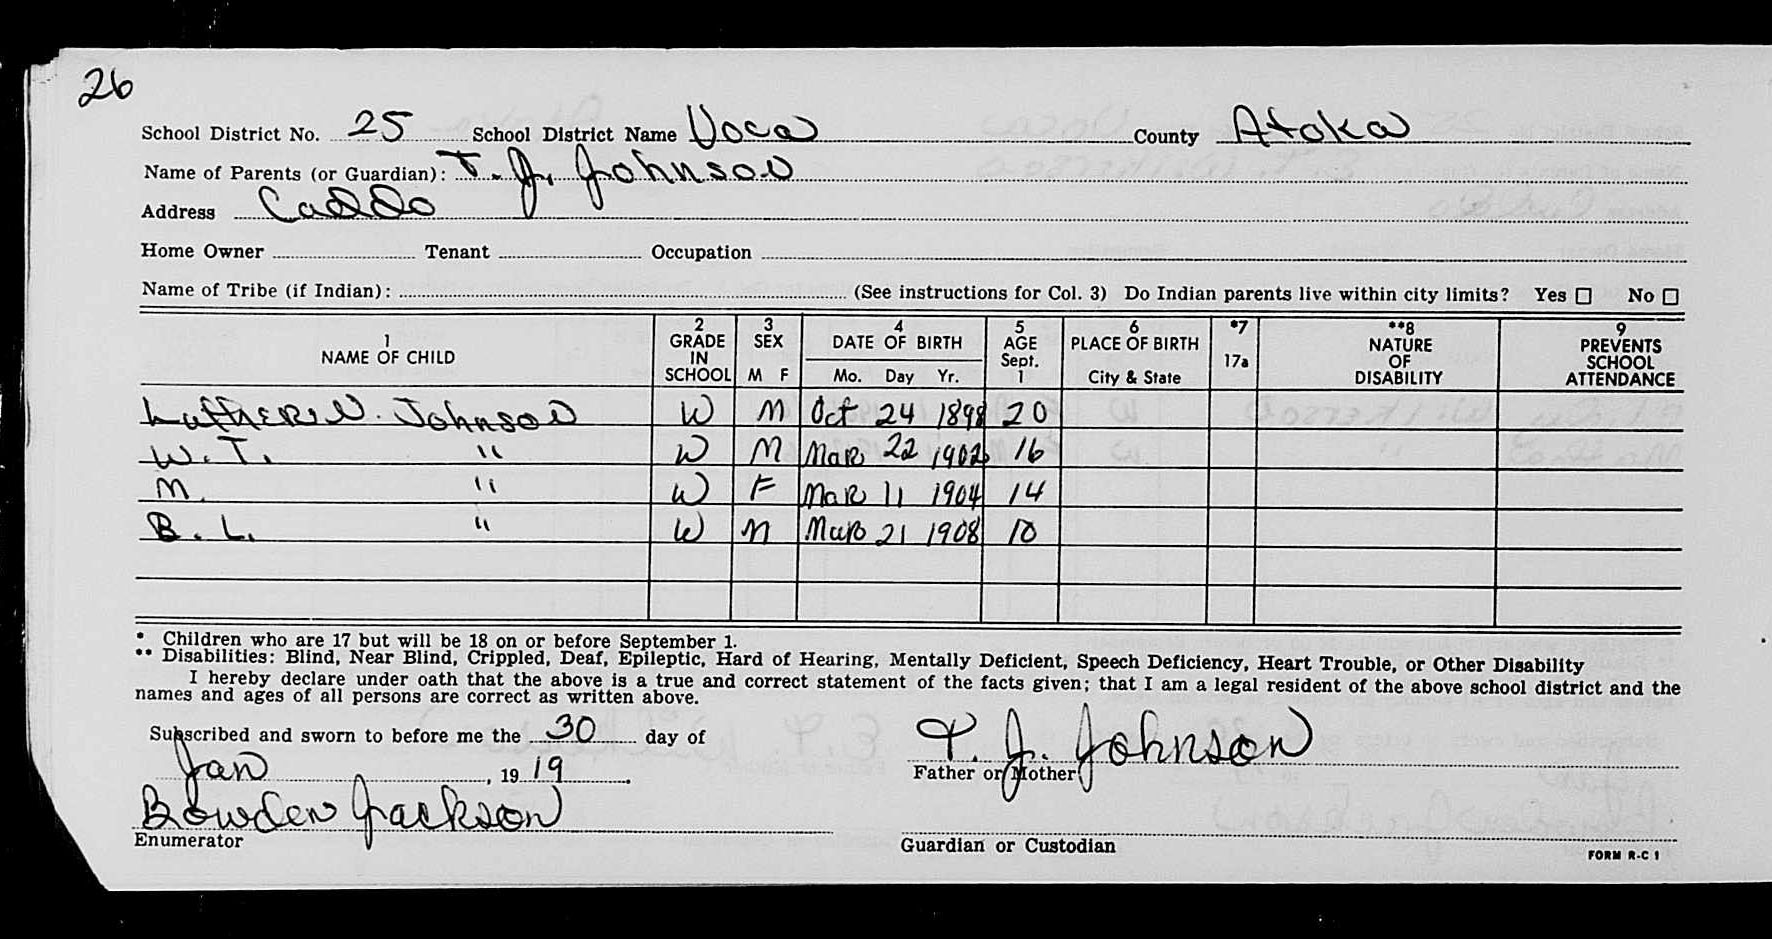 26
School District No. 25 School District Name Voca County Atoka
Name of Parents (or Guardian): T. J. Johnson
Address Caddo
Home Owner Tenant Occupation
Name of Tribe (if Indian): (See instructions for Col. 3) Do Indian parents live within city limits? Yes No
1 NAME OF CHILD 2 GRADE IN SCHOOL 3 SEX M F 4 DATE OF BIRTH Mo. Day Yr. 5 AGE Sept. 1 6 PLACE OF BIRTH City & State *7 17a **8 NATURE OF DISABILITY 9 PREVENTS SCHOOL ATTENDANCE
Johnson W M Oct 24 1898 20
W. T. " W M Mar 22 1902 16
M. " W F Mar 11 1904 14
B. L. " W M Mar 21 1908 10
* Children who are 17 but will be 18 on or before September 1.
** Disabilities: Blind, Near Blind, Crippled, Deaf, Epileptic, Hard of Hearing, Mentally Deficient, Speech Deficiency, Heart Trouble, or Other Disability
I hereby declare under oath that the above is a true and correct statement of the facts given; that I am a legal resident of the above school district and the
names and ages of all persons are correct as written above.
Subscribed and sworn to before me the 30 day of
Jan, 19 19.
T. J. Johnson
Father or Mother
Bowden Jackson
Enumerator
Guardian or Custodian
FORM R-C 1